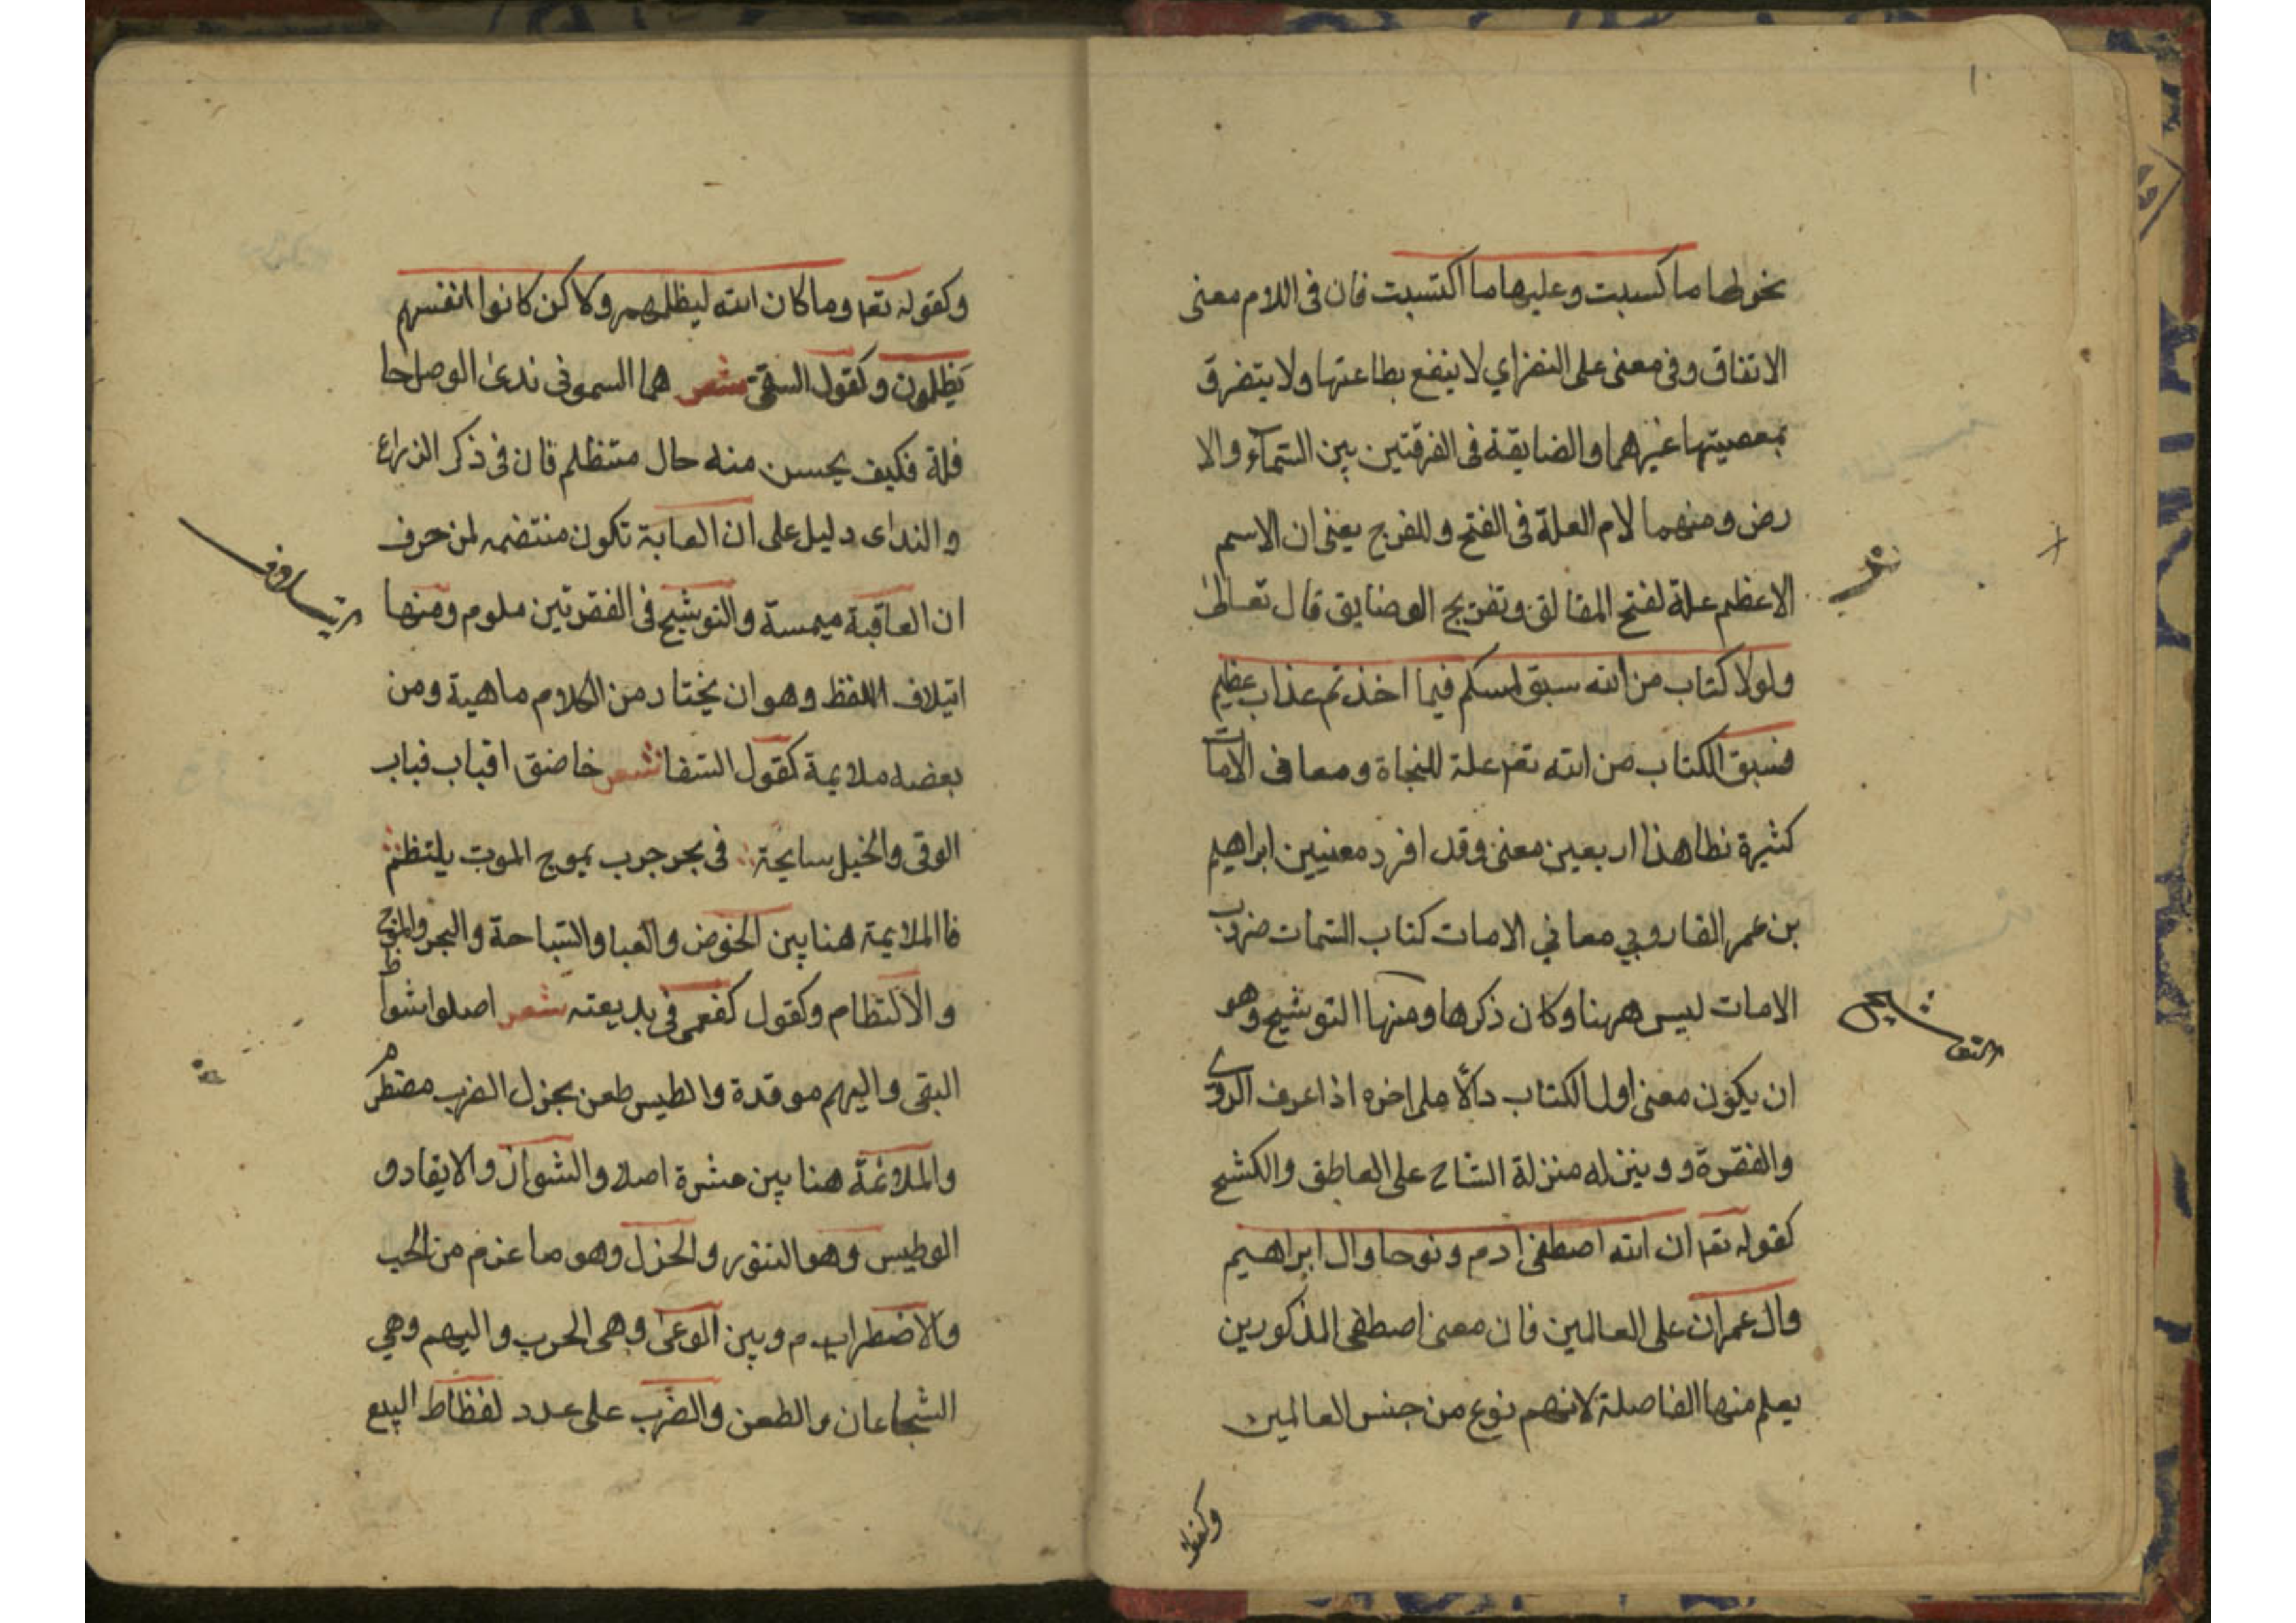 نحو لها ما كسبت وعليها ما اكتسبت فان فى اللام معنى
الاتفاق وفى معنى على النضراي لا ينفع بطاعتها ولا يتضرق
بمعصيتها غيرهما والضايقة فى الفرقتين بين السمآء والا
رض ومنهما لام العلة فى الفتح وللفرج يعنى ان الاسم
الاعظم علة لفتح المقالق وتفريج الوضايق قال تعالى
ولولا كتاب من الله سبق لمسكم فيما اخذتم عذاب عظيم
فسبق الكتاب من الله تعم علة للنجاة ومعاف الامات
كثيرة نطا هذا اربعين معنى وقد افرد معنيين ابراهيم
بن عمر الفاروبي معاني الامات كتاب السمات ضروب
الامات ليس ههنا وكان ذكرها ومنها التوشيح وهو
ان يكون معنى اول الكتاب دالًا على اخره اذا عرف الروى
والفقرة و وينزله منزلة الشاح على العاطق والكشح
كقوله تعم ان الله اصطفى ادم ونوحا وال ابراهيم
وال عمران على العالمين فان معنى اصطفى المذكورين
يعلم منها الفاصلة لانهم نوع من جنس العالمين
وكقوله
وكقوله تعم وما كان الله ليظلمهم ولاكن كانوا انفسهم
يظلمون وكقول السقى شعر هما السموفى ندى الوصل حا
فلة فكيف يحسن منه حال متنظلم فان فى ذكر الذراع
والنداى دليل على ان العابة تكون منتضمه لمن حرف
ان العاقبة ميمسة والتوشيح فى الفقرتين ملوم ومنها
ايتلاف اللفظ وهو ان يختار من الكلام ماهية ومن
بعضه ملايمة كقول الشفا شعر خاضق اقباب فباب
الوقى والخيل سايحة فى بحر جرب بموج الموت يلتظم
فاالملايمة هنا بين الخوض والعبا والسباحة والبحر والموج
والالتظام وكقول كفعمى فى بديعته شعر اصلوا شوا ظ
البقى واليهم موقدة والطيس طعن بجزل الضرب مضطرم
والملائمة هنا بين عشرة اصلا والشوان والايقاد و
الوطيس وهو التنور والحزل وهو ما عزم من الحب
والاضطراب م وبين الوعى وهى الحرب واليهم وهي
الشجاعان والطعن والضرب على عدد لفظاط البيع